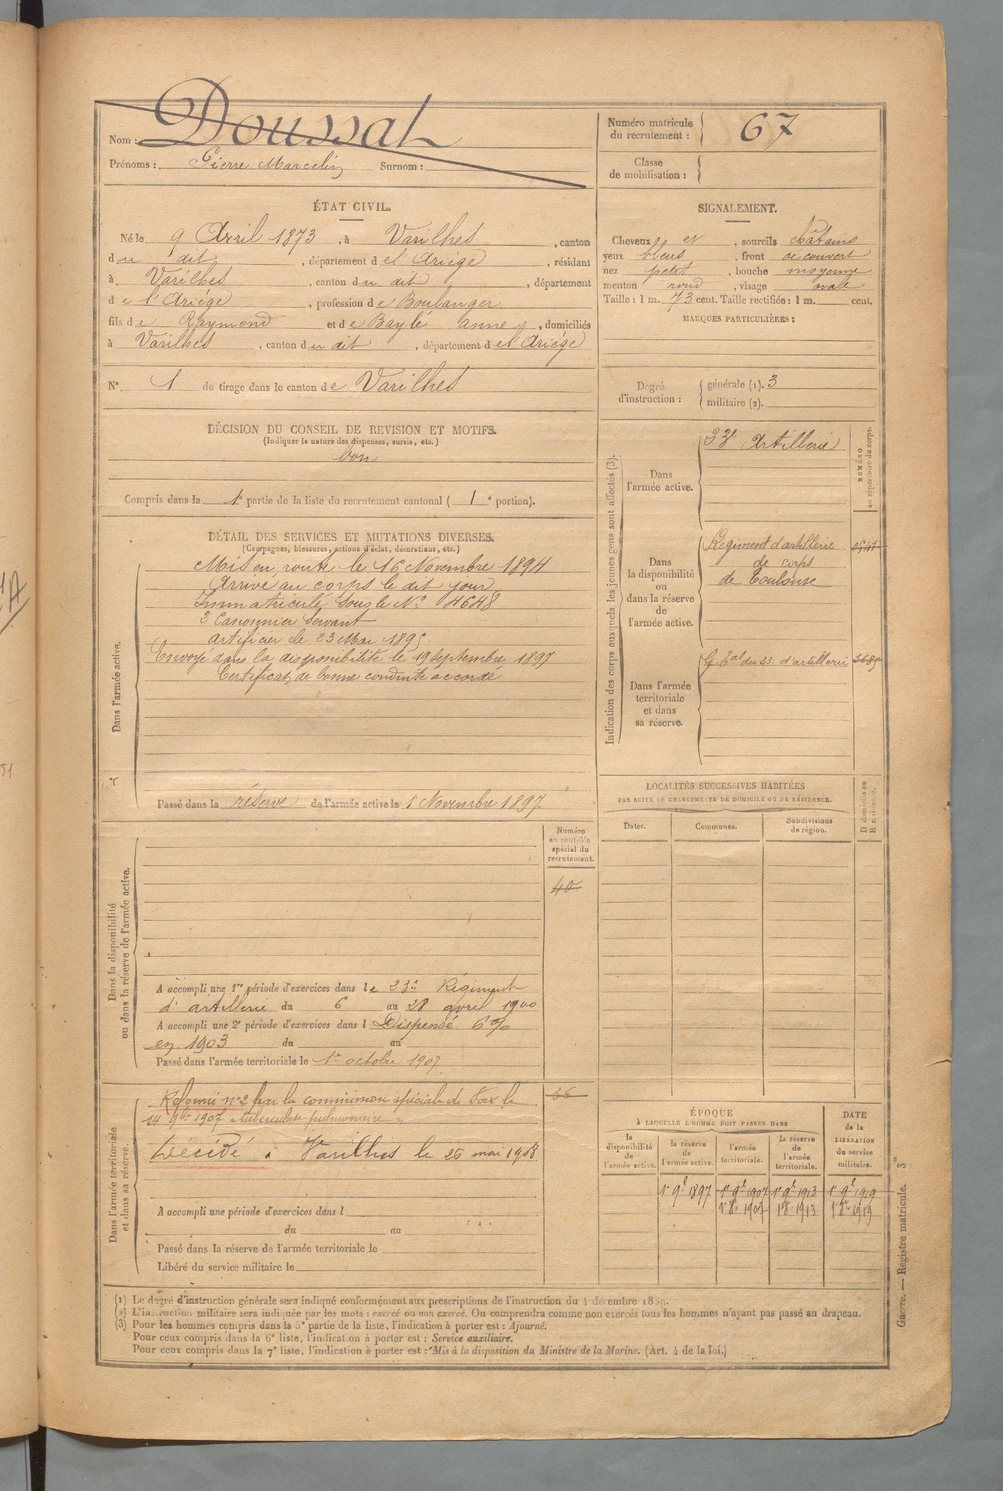 Nom : Doussat
Prénoms : Pierre Marcelin Surnom :
Numéro matricule du recrutement : 67
Classe de mobilisation :
ÉTAT CIVIL.
Né le 9 Avril 1873, à Varilhes, canton
du dit, département de l'Ariège, résidant
à Varilhes, canton du dit, département
de l'Ariège, profession de Boulanger
fils de Raymond et de Baylé Anne, domiciliés
à Varilhes, canton du dit, département de l'Ariège
N° 1 de tirage dans le canton de Varilhes
DÉCISION DU CONSEIL DE REVISION ET MOTIFS.
(Indiquer la nature des dispenses, sursis, etc.)
bon
Compris dans la 1e partie de la liste du recrutement cantonal ( 1e portion).
DÉTAIL DES SERVICES ET MUTATIONS DIVERSES.
(Campagnes, blessures, actions d'éclat, décorations, etc.)
Dans l'armée active.
Mis en route le 16 Novembre 1894
Arrivé au corps le dit jour
Immatriculé sous le N° 4648
2e Canonnier Servant
artificier le 23 Mai 1895
Envoyé dans la disponibilité le 19 Septembre 1897
Certificat de bonne conduite accordé
Passé dans la réserve de l'armée active le 1 Novembre 1897
Dans la disponibilité
ou dans la réserve de l'armée active.
Numéro
au contrôle
spécial du
recrutement.
40
A accompli une 1re période d'exercices dans le 23e Régiment
d'artillerie du 6 au 28 avril 1900
A accompli une 2e période d'exercices dans l Dispensé 6%
en 1903 du au
Passé dans l'armée territoriale le 1er octobre 1907
Dans l'armée territoriale
et dans sa réserve.
Réformé n°2 par la commission spéciale de Foix le
14 9bre 1907 « tuberculose pulmonaire »
Décédé à Varilhes le 26 mai 1908.
A accompli une période d'exercices dans l
du au
Passé dans la réserve de l'armée territoriale le
Libéré du service militaire le
SIGNALEMENT.
Cheveux et, sourcils châtains
yeux bleus, front découvert
nez petit, bouche moyenne
menton rond, visage ovale
Taille : 1 m. 73 cent. Taille rectifiée : 1 m. cent.
MARQUES PARTICULIÈRES :
Degré d'instruction : générale (1). 3
militaire (2).
Indication des corps auxquels les jeunes gens sont affectés (3).
NUMÉRO
au répertoire du corps.
Dans
l'armée active.
23e Artillerie
Dans
la disponibilité
ou
dans la réserve
de
l'armée active.
Régiment d'artillerie
de corps
de Toulouse
Dans l'armée
territoriale
et dans
sa réserve.
G. Pal du 23 d'artillerie
LOCALITÉS SUCCESSIVES HABITÉES
PAR SUITE DE CHANGEMENTS DE DOMICILE OU DE RÉSIDENCE.
D domicile ou
R résidence.
Dates. Communes. Subdivisions de région.
ÉPOQUE
À LAQUELLE L'HOMME DOIT PASSER DANS
DATE
de la
LIBÉRATION
du service
militaire.
la disponibilité de l'armée active. la réserve de l'armée active. l'armée territoriale. la réserve de l'armée territoriale.
1er 9e 1897 1er 9e 1907 1er 9e 1913 1er 9e 1919
1er 8e 1907 1er 8e 1913 1er 8e 1919
Guerre. — Registre matricule. 3e
(1) Le degré d'instruction générale sera indiqué conformément aux prescriptions de l'instruction du 4 décembre 1889.
(2) L'instruction militaire sera indiquée par les mots : exercé ou non exercé. On comprendra comme non exercés tous les hommes n'ayant pas passé au drapeau.
(3) Pour les hommes compris dans la 5e partie de la liste, l'indication à porter est : Ajourné.
Pour ceux compris dans la 6e liste, l'indication à porter est : Service auxiliaire.
Pour ceux compris dans la 7e liste, l'indication à porter est : Mis à la disposition du Ministre de la Marine. (Art. 4 de la loi.)